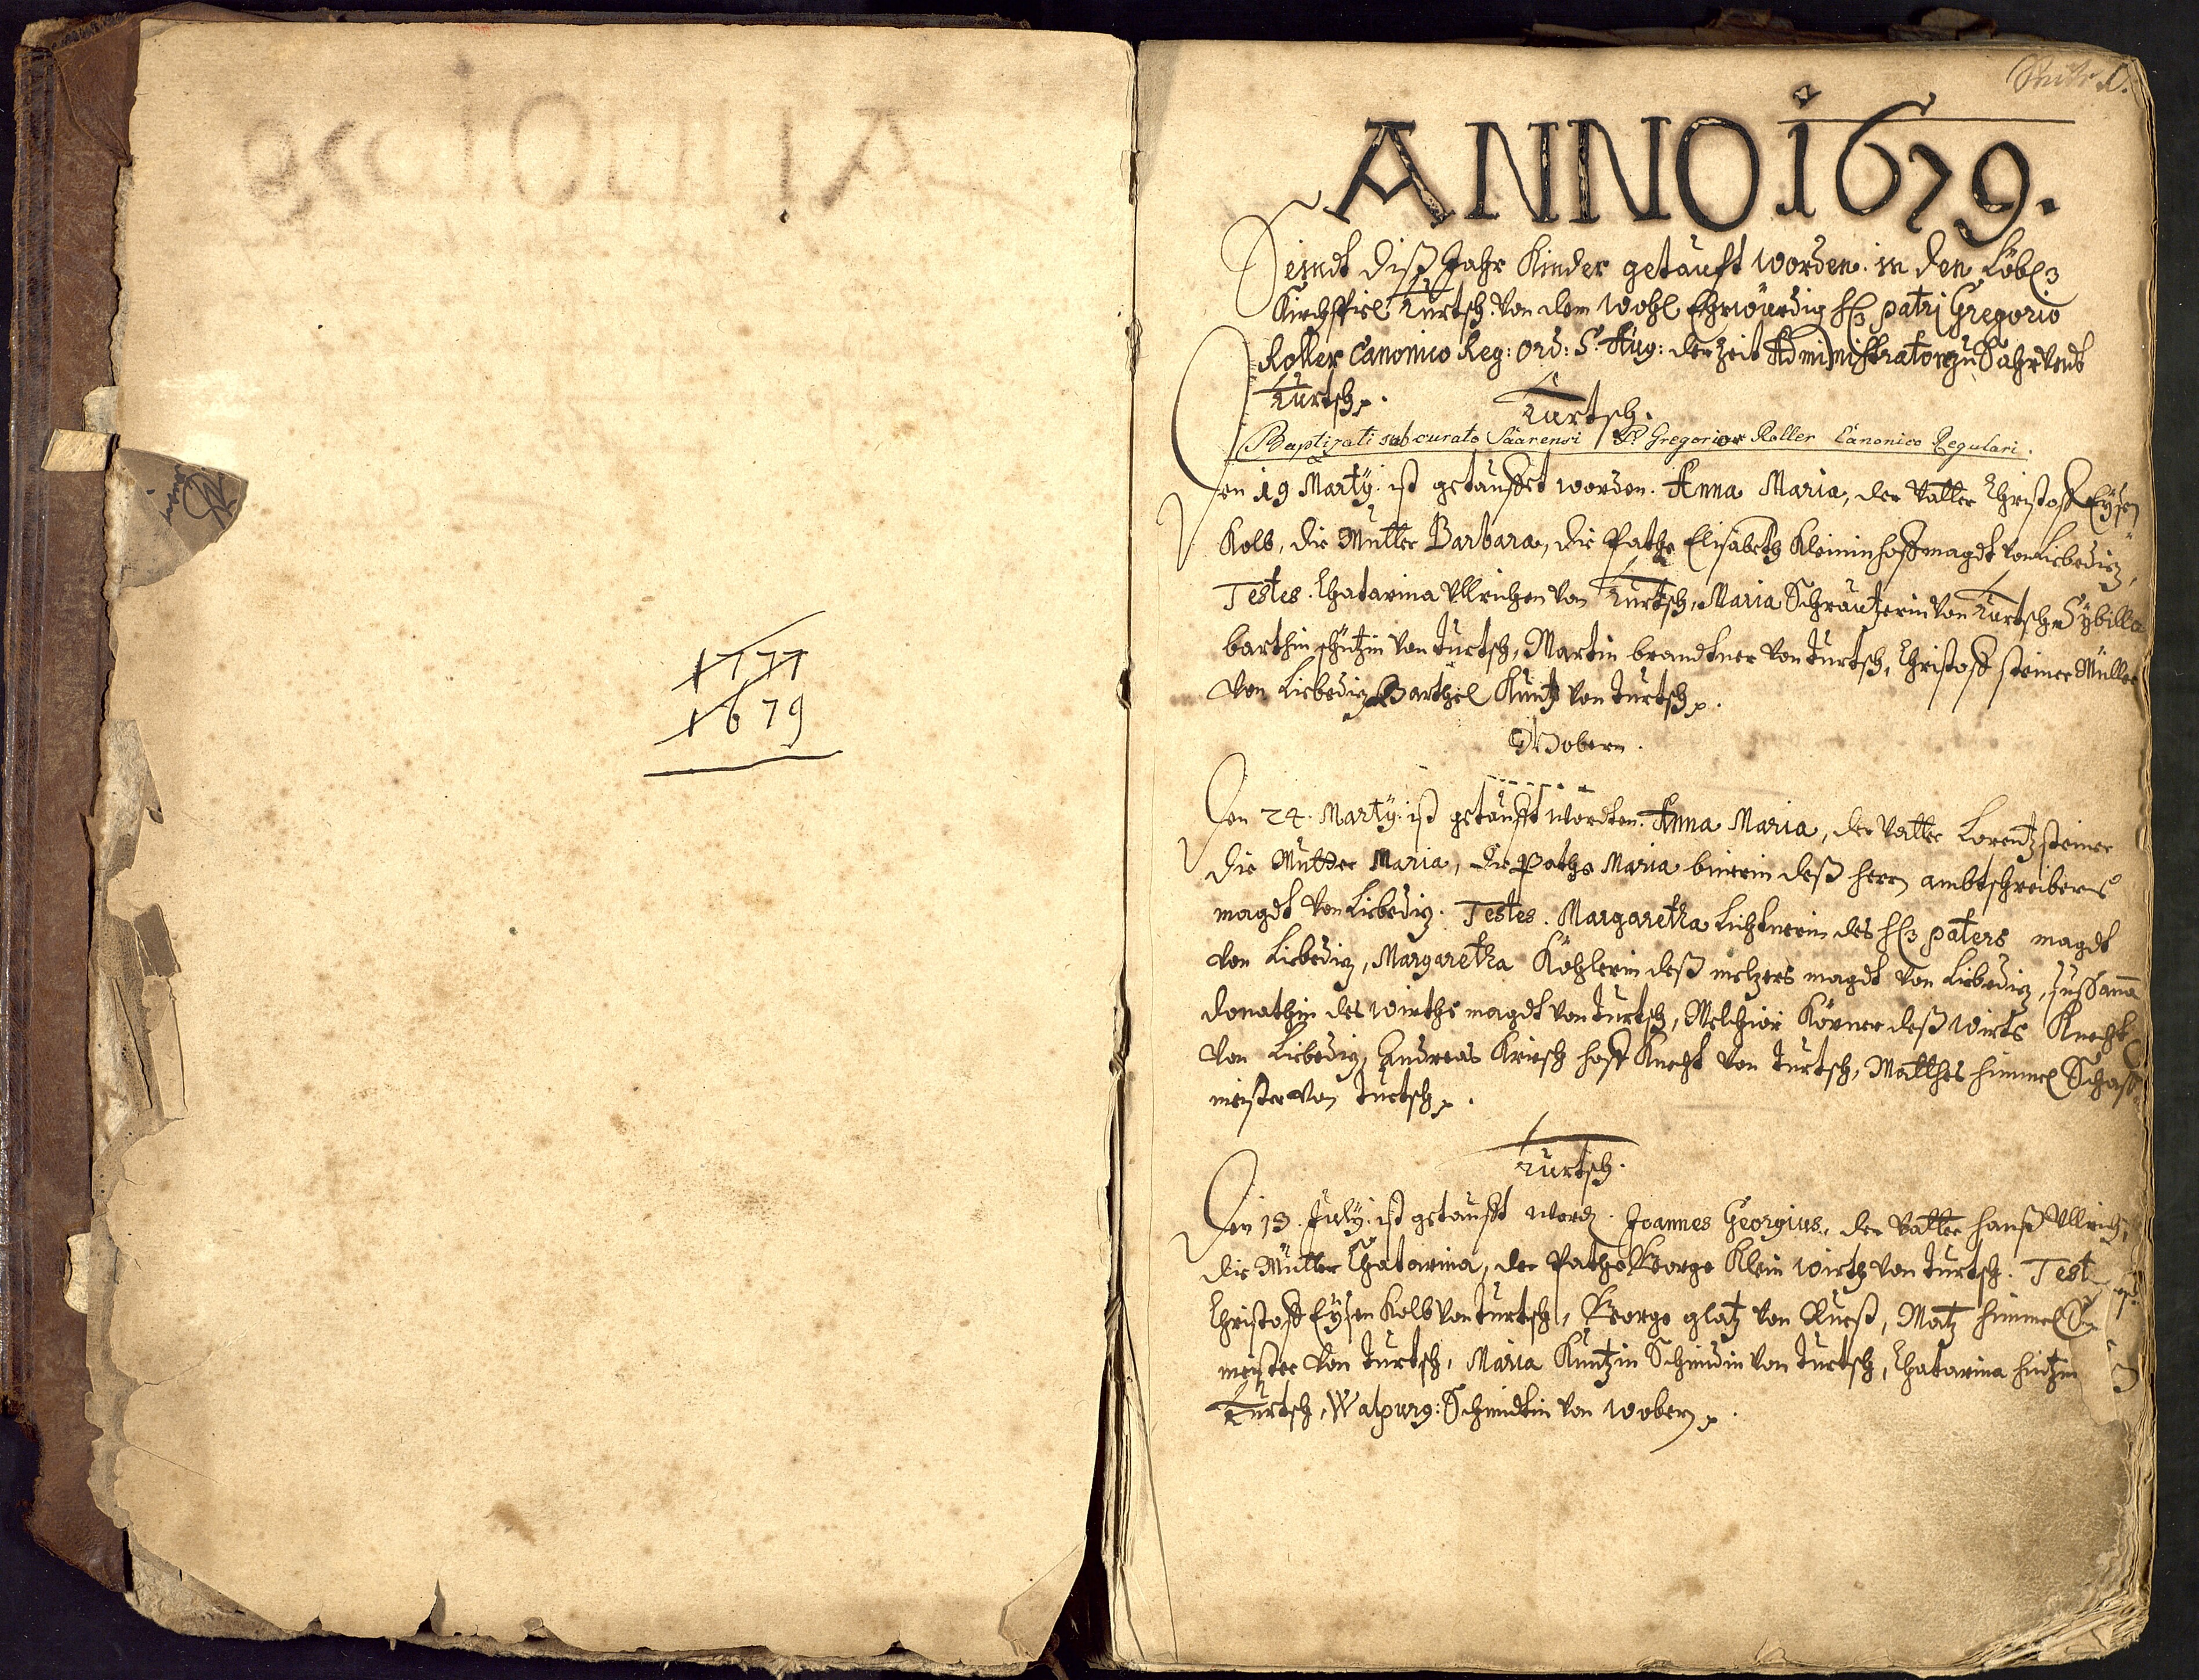 1777
1679
Seite 1.
ANNO 1679.
Seindt diß Jahr Kinder getauft worden. in den Löbl
Kirchspiel Turtsch. von dem Wohl Ehrwürdig H patri Gregorio
Roller Canonico Reg: Ord: S. Aug: der Zeit Administrator zu Sahr undt
Turtsch.
Turtsch.
Baptizati sub curato Säarensi P. Gregorio Roller Canonico Regulari.
Den 19 Marty. ist getauffet worden. Anna Maria, der Vatter Christoff Eysen
Kolb, die Mutter Barbara, die Pathe Elisabeth Kleinin hoffmagdt von Liebediz,
Testes. Chatarina Ullrichen von Turtsch, Maria Schräuterin von Turtsch Sybilla
barthin schützin von Turtsch, Martin brandtner von Turtsch, Christoff steiner Müller
von Liebediz Barthel Kuntz von Turtsch.
Wobern.
Den 24. Marty. ist getaufft wordten. Anna Maria, der Vatter Lorentz steiner
die Mutter Maria, die Pathe Maria deß herrn ambtschreibers
magdt von Liebediz. Testes. Margaretha Lichtnerin des H paters magdt
von Liebediz, Margaretha Köhlerin deß melzers magdt von Liebediz, Sussana
donathin des wirths magdt von Turtsch, Melchior Körner deß Wirts Knecht
von Liebediz, Andreas Kriesch hoff Knecht von Turtsch, Matthes himmel Schaff
meister von Turtsch.
Turtsch.
Den 13. July. ist getaufft word. Joannes Georgius, der Vatter hanß Ullrich,
die Mutter Chatarina, der Pathe George Klein Wirth von Turtsch. Test
Christoff Eysen Kolb von Turtsch, George glatz von Rueß, Matz himmel
meister von Turtsch, Maria Kuntzin Schmidin von Turtsch, Chatarina
Turtsch, Walpurg: Schmidtin von Wobern.